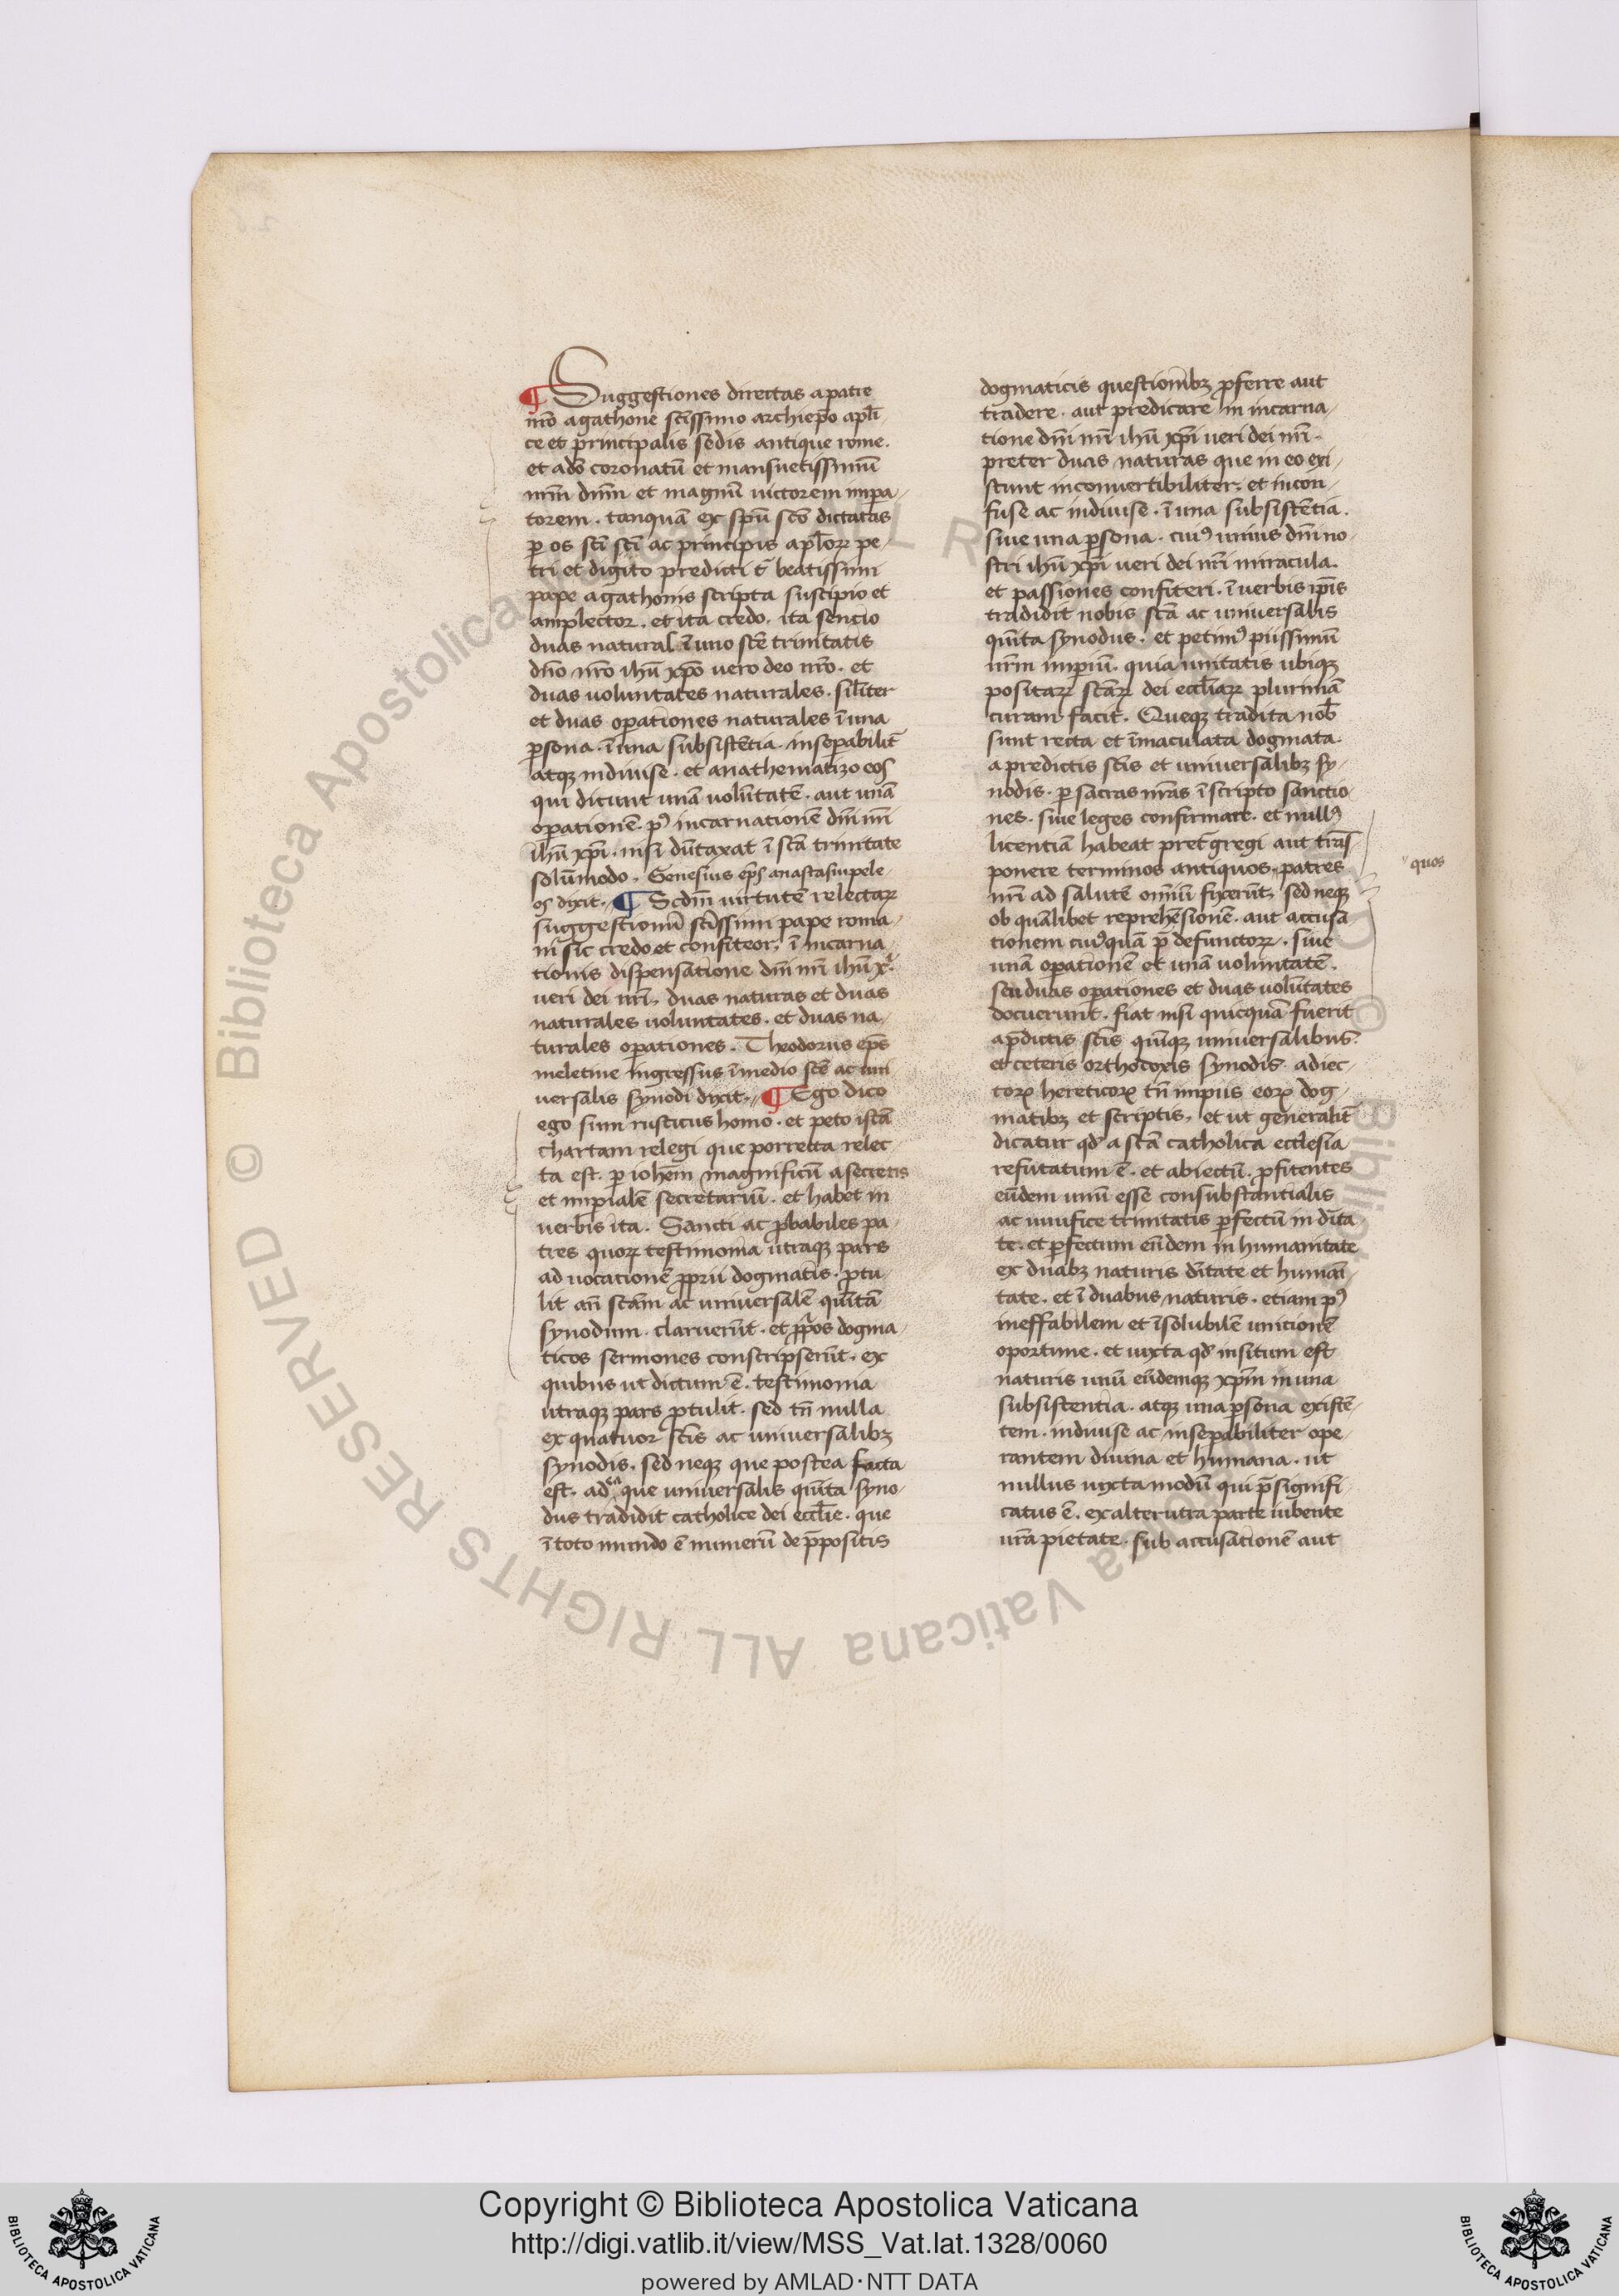 ¶ Suggestiones directas a patre
nr̄o agathone sc̄issimo archiep̄o apl̄i
ce et principalis sedis antique rome.
et adō coronatū et mansuetissimū
nr̄m dn̄m et magnū uictorem imꝑa-
torem. tanquā ex sp̄u sc̄o dictatas
ꝑ os sc̄i sc̄i ac principis apl̄oꝝ pe-
tri et digito predicti t̄ beatissimi
pape agathonis scripta suscipio et
amplector. et ita credo. ita sencio
duas natural̄ ī uno sc̄e trinitatis
dn̄o nr̄o ihū xp̄o uero deo nr̄o. et
duas uoluntates naturales. sil̄iter
et duas oꝑationes naturales ī una
ꝑsona. ī una subsistētia. inseꝑabilit̄
atqꝫ indiuise. et anathematizo eos
qui dicunt unā uolūtatē. aut unā
oꝑationē. pꝰ incarnationē dn̄i nr̄i
ihū xp̄i. nisi dūtaxat ī sc̄a trinitate
solūmodo. Genesius ep̄s anastasiupole-
os dixit. ¶ Scdm̄ uirtutē relectaꝝ
suggestionū sc̄issimi pape roma-
ni sic credo et confiteor. ī incarna
tionis dispensatione dn̄i nr̄i ihū xͥ.
ueri dei nr̄i. duas naturas et duas
naturales uoluntates. et duas na-
turales oꝑationes. Theodorus ep̄s
meletine ingressus ī medio sc̄e ac uni
uersalis synodi dixit. ¶ Ego dico
ego sum rusticus homo. et peto istā
chartam relegi que porrecta relec
ta est. ꝑ ioh̄em magnificū a secretis
et imꝑialē secretariū. et habet in
uerbis ita. Sancti ac ꝓbabiles pa-
tres quoꝝ testimonia utraqꝫ pars
ad uocationē ꝓprii dogmatis. ꝓtu-
lit an̄ sc̄am ac uniuersalē quītā
synodum. claruerūt. et ꝓpͥos dogma-
ticos sermones conscripserūt. ex
quibus ut dictum ē. testimonia
utraqꝫ pars ꝓtulit. sed tn̄ nulla
ex quatuor sc̄is ac uniuersalibꝫ
synodis. sed neqꝫ que postea facta
est. ad ea que uniuersalis quīta syno-
dus tradidit catholice dei eccl̄ie. que
ī toto mundo ē numerū de p̄positis
dogmaticis questionībꝫ ꝓferre aut
tradere. aut predicare in incarna-
tione dn̄i nr̄i ihū xp̄i ueri dei nr̄i.
preter duas naturas que in eo exi-
stunt inconuertibiliter. et incon-
fuse ac indiuise. ī una subsistētia.
siue una ꝑsona. cuiꝰ unius dn̄i no-
stri ihū xp̄i ueri dei nr̄i miracula.
et passiones confiteri. ī uerbis ip̄is
tradidit nobis sc̄a ac uniuersalis
quīta synodus. et petimꝰ piissimū
ur̄m imꝑiū. quia unitatis ubiqꝫ
positaꝝ sc̄aꝝ dei eccl̄iaꝝ plurimā
curam facit. Queqꝫ tradita nob̄
sunt recta et īmaculata dogmata.
a predictis sc̄is et uniuersalibꝫ sy-
nodis. ꝑ sacras ur̄as ī scripto sanctio-
nes. siue leges confirmare. et nullꝰ
licentiā habeat pret̄gregi aut trās
ponere terminos antiquos patres
quos
nr̄i ad salutē omniū fixerūt. sed neqꝫ
ob quālibet reprehēsionē. aut accusa
tionem cuiꝰquā p̄ defunctoꝝ. siue
unā oꝑationē et unā uoluntatē.
seu duas oꝑationes et duas uolūtates
docuerunt. fiat nisi quicquā fuerit
a p̄dictis sc̄is quīqꝫ uniuersalibus
et ceteris orthodoxis synodis. adiec-
toꝝ hereticoꝝ tn̄ impiis eoꝝ dog-
matibꝫ et scriptis. et ut generalit̄
dicatur qd̓ a sc̄a catholica ecclesia
refutatum ē. et abiectū. ꝓfitentes
eūdem unū esse consubstantialis
ac uiuifice trinitatis ꝑfectū in dīta
te. et ꝑfectum eūdem in humanitate
ex duabꝫ naturis dītate et humani-
tate. et ī duabus naturis. etiam pꝰ
ineffabilem et īsolubilē unicionē
oportune. et iuxta qd̓ insitum est
naturis unū eūdemqꝫ xp̄m in una
subsistentia. atqꝫ una ꝑsona existē-
tem. indiuise ac inseꝑabiliter ope-
rantem diuina et humana. ut
nullus iuxta modū qui p̄signifi-
catus ē. ex alterutra parte iubente
ur̄a pietate. sub accusationē aut
Copyright © Biblioteca Apostolica Vaticana
http://digi.vatlib.it/view/MSS_Vat.lat.1328/0060
powered by AMLAD·NTT DATA